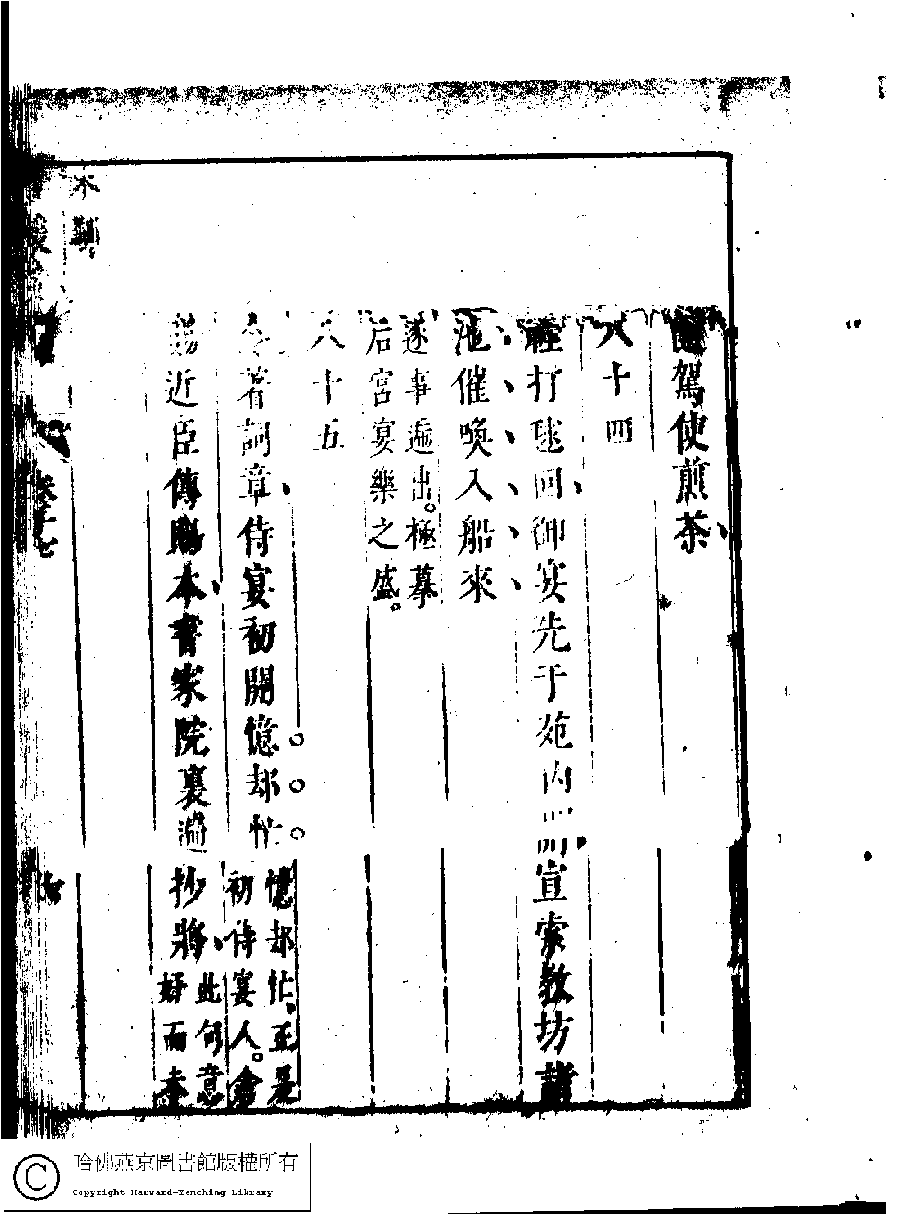 駕使煎茶
八十四
打毬回御宴先于苑内宣索教坊諸
池催喚入船來
逐事遍出。極摹
后宮宴樂之盛。
八十五
著詞章侍宴初開憶却忙
憶却忙。正是
初侍宴人。會
賜近臣傳賜本書家院裏遍抄將
此句意
好而
卷十七
哈佛燕京圖書館版權所有
Copyright Harvard-Yenching Library